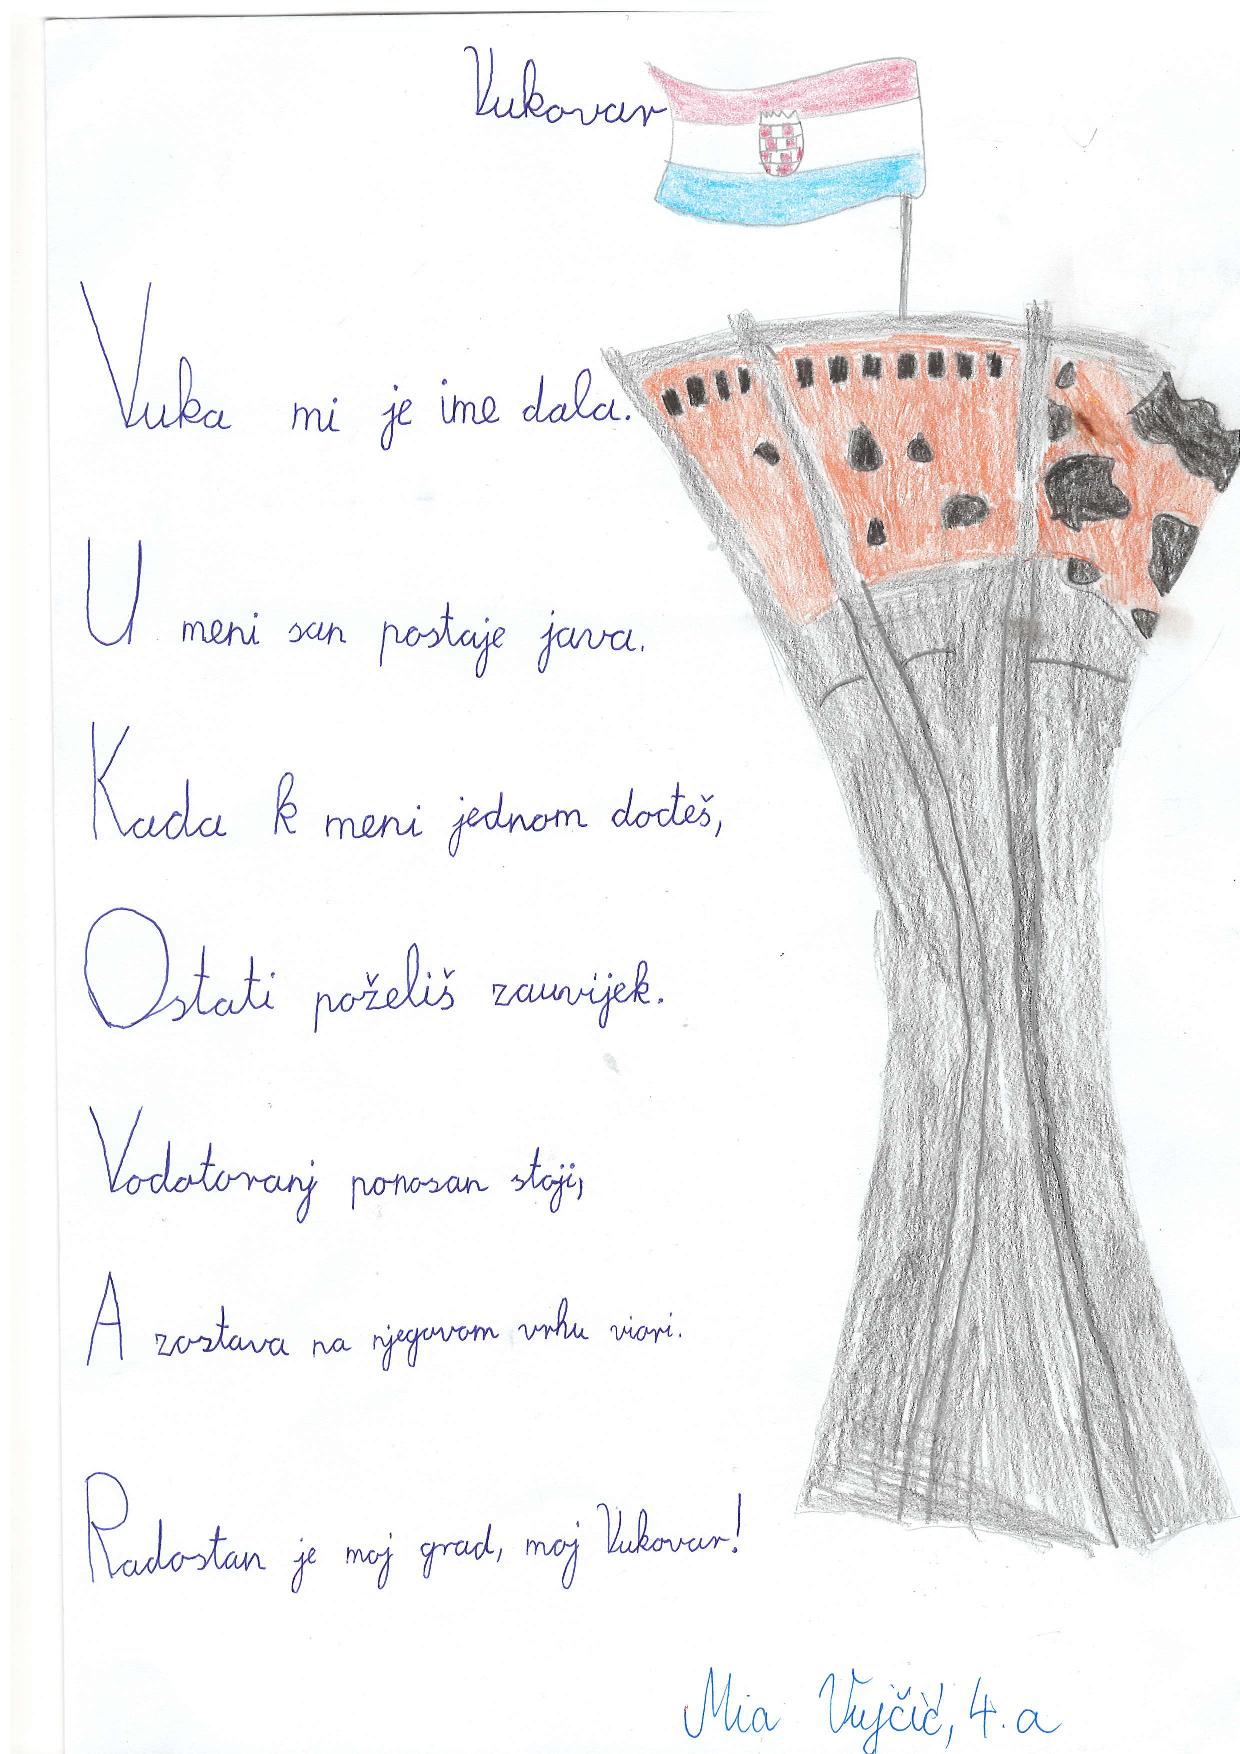 Vukovar
Vuka mi je ime dala.
U meni san postaje java.
Kada k meni jednom dođeš,
Ostati poželiš zauvijek.
Vodotoranj ponosan stoji,
A zastava na njegovom vrhu viori.
Radostan je moj grad, moj Vukovar!
Mia Vujčić, 4. a